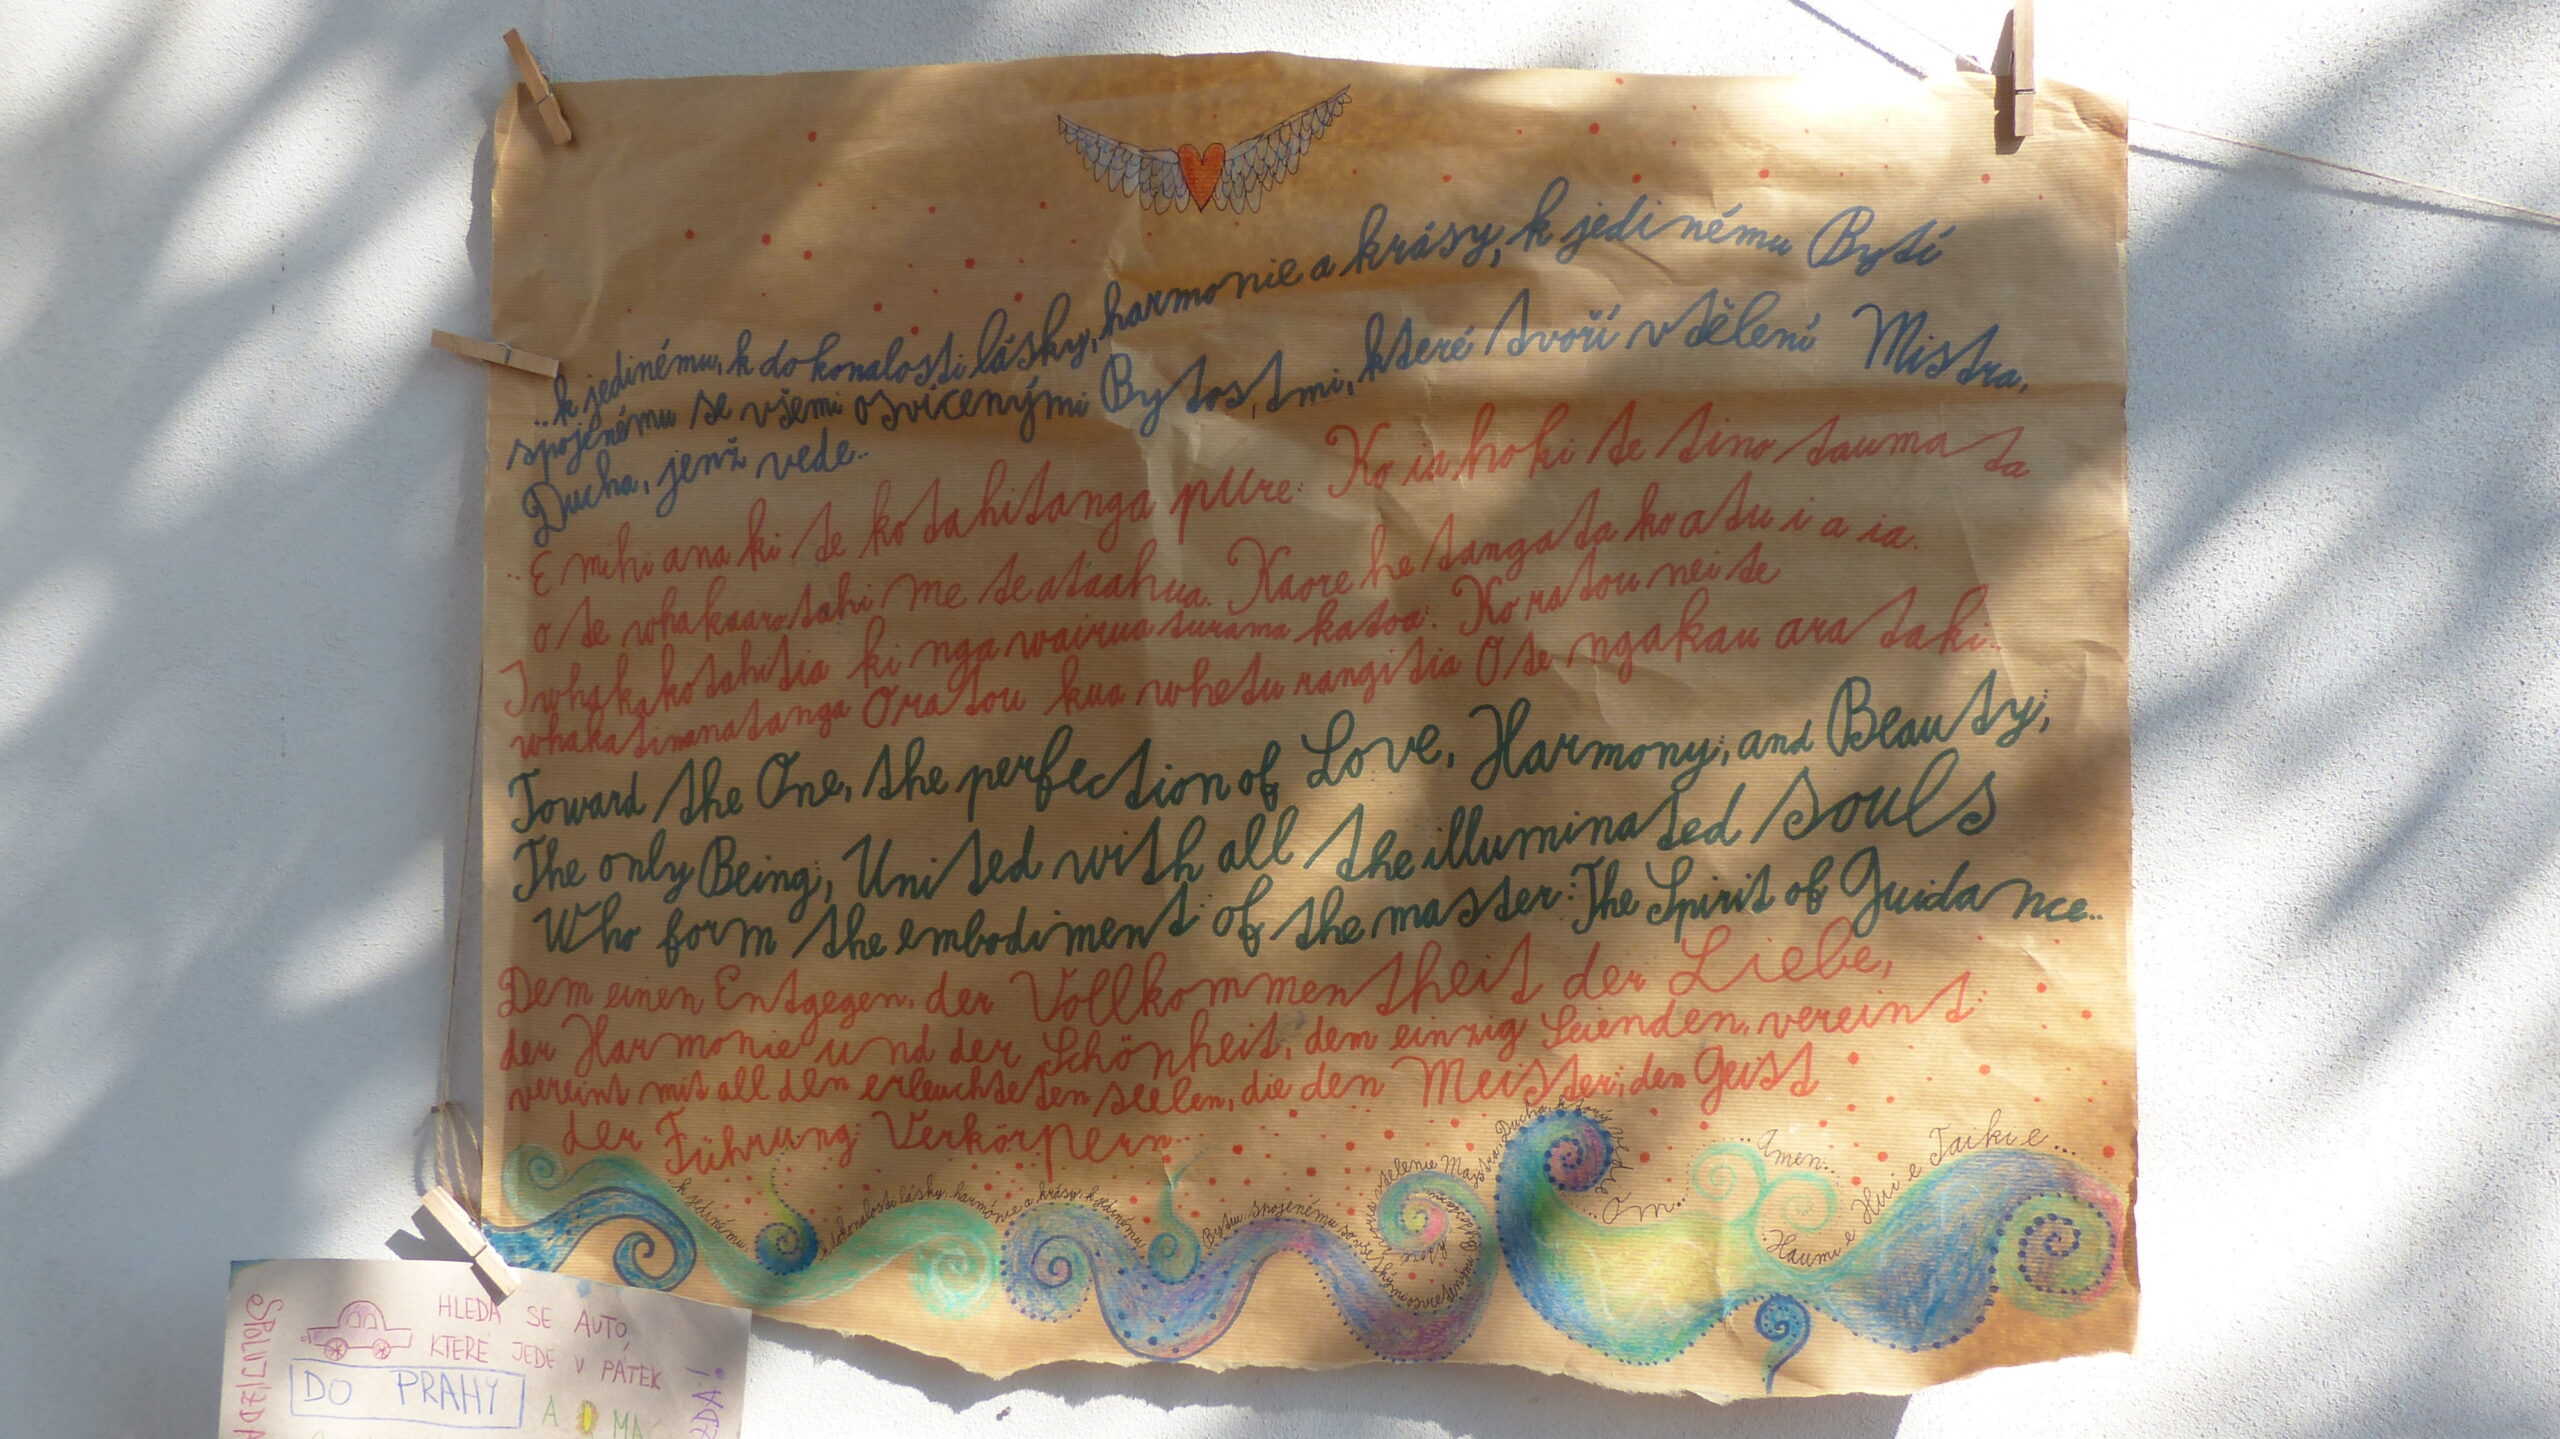 ..k jedinému, k dokonalosti lásky, harmonie a krásy, k jedinému Bytí
spojenému se všemi osvícenými Bytostmi, které tvoří vtělení Mistra,
Ducha, jenž vede..
..E mihi ana ki te kotahitanga pure: Ko ia hoki te tino taumata
o te whakaarotahi me te ataahua. Kaore he tangata ko atu i a ia.
I whakakotahitia ki nga wairua turama katoa: Ko ratou nei te
whakatinanatanga O ratou kua whetu rangitia O te ngakau arataki..
Toward the One, the perfection of Love, Harmony, and Beauty,
The only Being, United with all the illuminated souls
Who form the embodiment of the master: The Spirit of Guidance..
Dem einen Entgegen, der Vollkommentheit der Liebe,
der Harmonie und der Schönheit, dem einzig Seienden, vereint
vereint mit all den erleuchteten seelen, die den Meister, den Geist
der Führung Verkörpern..
..k jedinému, k dokonalosti lásky, harmónie a krásy, k jedinému
Bytiu spojenému so všetkými osvietenými
bytosťami ktoré
tvoria vtelenie Majstra, Ducha, ktorý vedie
..Óm...
...Amen...
Haumi e Hui e Taiki e...
SPOLUJIZDA
HLEDÁ SE AUTO,
KTERÉ JEDE V PÁTEK
DO PRAHY
A MÁ